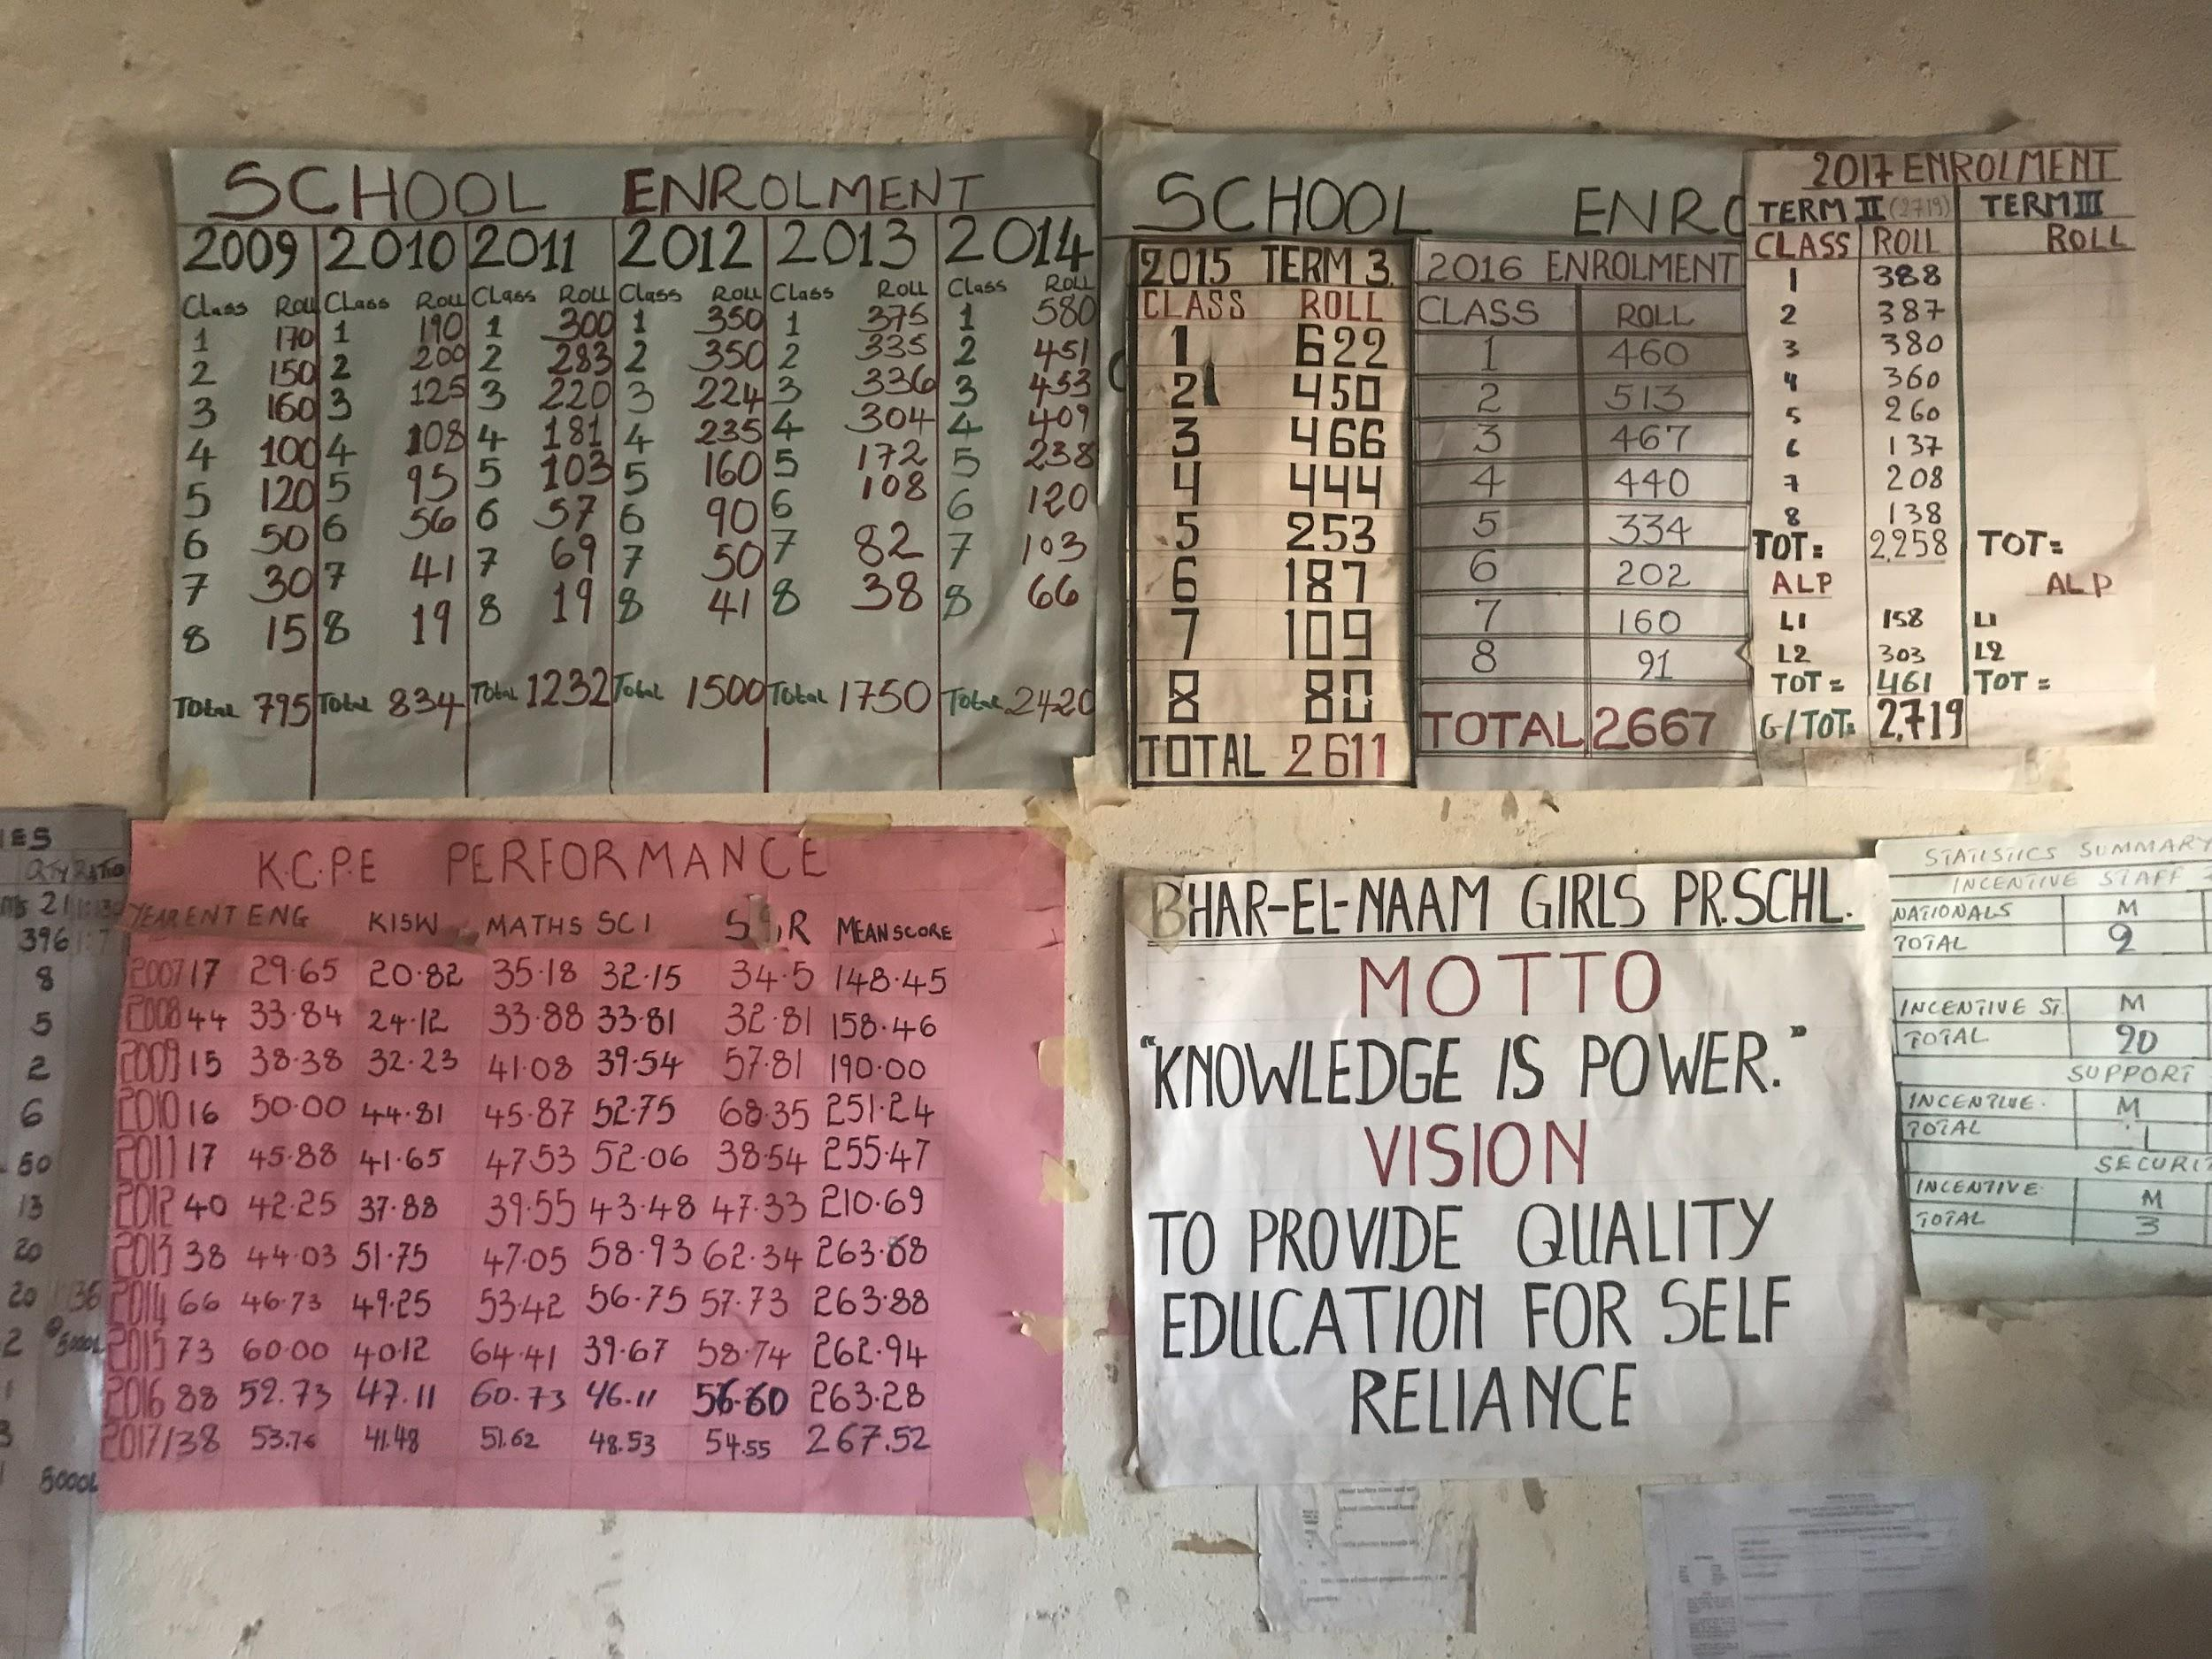 SCHOOL ENROLMENT
2009 2010 2011 2012 2013 2014
Class Roll Class Roll Class Roll Class Roll Class Roll Class Roll
1 170 1 190 1 300 1 350 1 375 1 580
2 150 2 200 2 283 2 350 2 335 2 451
3 160 3 125 3 220 3 224 3 336 3 453
4 100 4 108 4 181 4 235 4 304 4 409
5 120 5 95 5 103 5 160 5 172 5 238
6 50 6 56 6 57 6 90 6 108 6 120
7 30 7 41 7 69 7 50 7 82 7 103
8 15 8 19 8 19 8 41 8 38 8 66
Total 795 Total 834 Total 1232 Total 1500 Total 1750 Total 2420
SCHOOL ENRO
2015 TERM 3
CLASS ROLL
1 622
2 450
3 466
4 444
5 253
6 187
7 109
8 80
TOTAL 2611
2016 ENROLMENT
CLASS ROLL
1 460
2 513
3 467
4 440
5 334
6 202
7 160
8 91
TOTAL 2667
2017 ENROLMENT
TERM II (2719) TERM III
CLASS ROLL ROLL
1 388
2 387
3 380
4 360
5 260
6 137
7 208
8 138
TOT= 2,258 TOT=
ALP ALP
L1 158 L1
L2 303 L2
TOT = 461 TOT =
G/TOT= 2,719
IES
QTY RATIO
21
396
8
5
2
6
50
13
20
20
2 5000L
5000L
K.C.P.E PERFORMANCE
YEAR ENT ENG KISW MATHS SCI MEAN SCORE
2007 17 29.65 20.82 35.18 32.15 34.5 148.45
2008 44 33.84 24.12 33.88 33.81 32.81 158.46
2009 15 38.38 32.23 41.08 39.54 57.81 190.00
2010 16 50.00 44.81 45.87 52.75 68.35 251.24
2011 17 45.88 41.65 47.53 52.06 38.54 255.47
2012 40 42.25 37.88 39.55 43.48 47.33 210.69
2013 38 44.03 51.75 47.05 58.93 62.34 263.68
2014 66 46.73 49.25 53.42 56.75 57.73 263.88
2015 73 60.00 40.12 64.41 39.67 58.74 262.94
2016 88 52.73 47.11 60.73 46.11 56.60 263.28
2017/38 53.76 41.48 51.62 48.53 54.55 267.52
BHAR-EL-NAAM GIRLS PR.SCHL.
MOTTO
"KNOWLEDGE IS POWER."
VISION
TO PROVIDE QUALITY
EDUCATION FOR SELF
RELIANCE
STATISTICS SUMMARY
INCENTIVE STAFF
NATIONALS M
TOTAL 9
INCENTIVE ST. M
TOTAL 20
SUPPORT
INCENTIVE. M
TOTAL 1
SECURIT
INCENTIVE. M
TOTAL 3